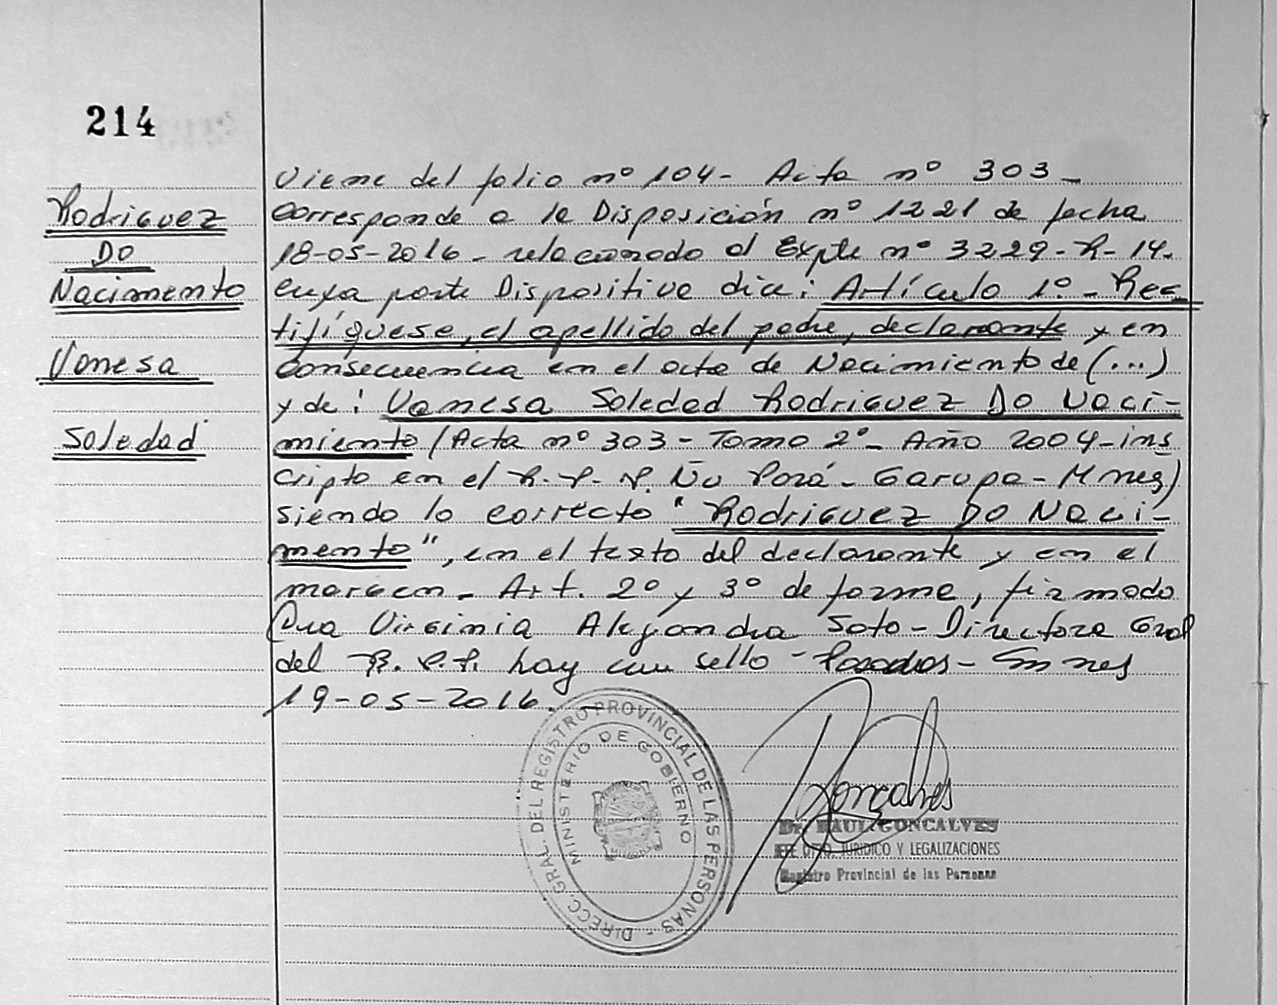 214
Rodriguez
DO
Nacimento
Vanesa
Soledad
Viene del folio nº 104- Acta nº 303-
Corresponde a la Disposición nº 1221 de fecha
18-05-2016- relacionado al Expte nº 3229-R-14.
cuya parte Dispositiva dice: Artículo 1º- Rec
tifíquese, el apellido del padre, declarante y en
consecuencia en el acta de Nacimiento de (...)
y de: Vanesa Soledad Rodriguez Do Naci-
miento (Acta nº 303- Tomo 2º- Año 2004-ins
cripto en el R.P.P. Ñu Porá- Garupa- Mnes)
siendo lo correcto "Rodriguez Do Naci-
mento", en el texto del declarante y en el
margen- Art. 2º y 3º de forma, firmado
Dra Virginia Alejandra Soto- Directora Gral
del R.P.P. hay un sello- Posadas- Mnes
19-05-2016.
DIRECC. GRAL. DEL REGISTRO PROVINCIAL DE LAS PERSONAS -
MINISTERIO DE GOBIERNO
Goncalves
Dr. RAUL GONCALVES
JEFE DPTO. JURIDICO Y LEGALIZACIONES
Registro Provincial de las Personas